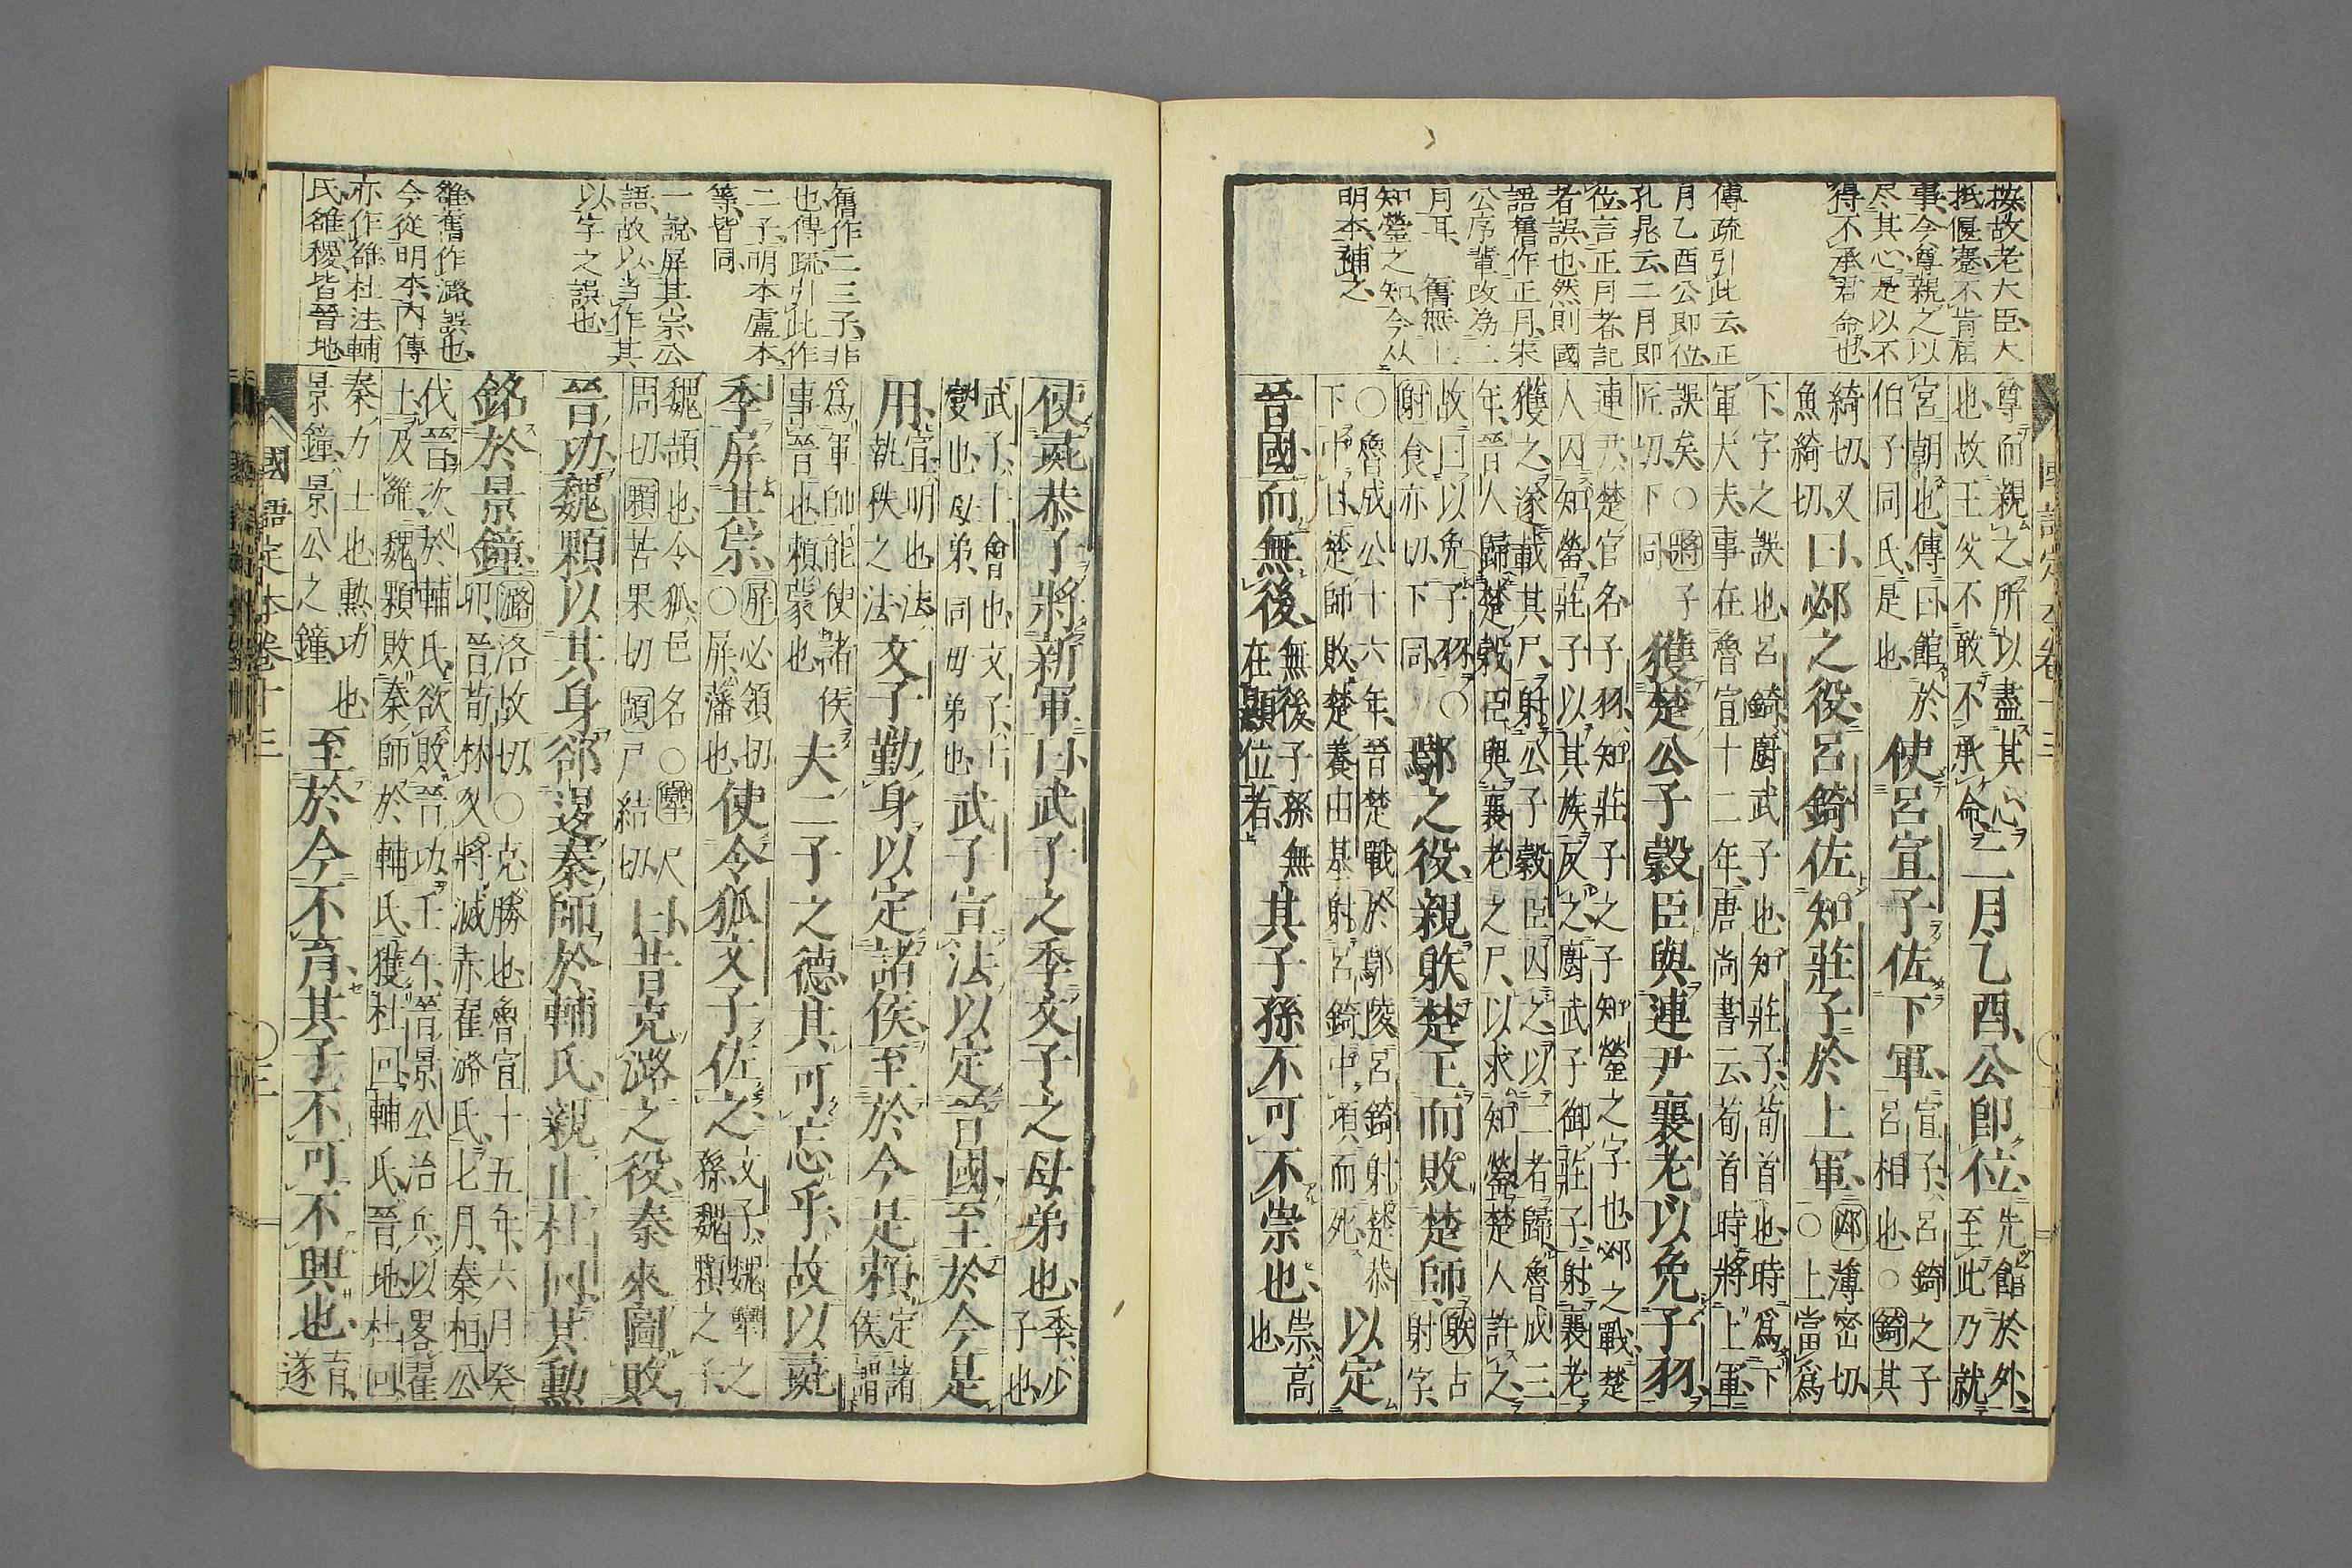 按故老大臣大
抵偃蹇不肯屈
事今尊親之以
尽其心是以不
得不承君命也
傳疏引此云正
月乙酉公即位
孔晁云二月即
位言正月者記
者誤也然則國
語舊作正月宋
公序輩改為二
月耳 舊無上
知罃之知今从
明本補之
尊而親之所以盡其心
也故王父不敢不承命
二月乙酉公即位
先館於外
至此乃就
宮朝也傳曰館於
伯子同氏是也
使呂宣子佐下軍
宣子呂錡之子
呂相也○錡其
綺切又
魚綺切
曰邲之役呂錡佐知莊子於上軍
邲薄密切
○上當爲
下字之誤也呂錡廚武子也知莊子荀首也時爲下
軍大夫事在魯宣十二年唐尚書云荀首時將上軍
誤矣○將子
匠切下同
獲楚公子穀臣與連尹襄老以免子羽
連尹楚官名子羽知莊子之子知罃之字也邲之戰楚
人囚知罃莊子以其族反之廚武子御莊子射襄老
獲之遂載其尸射公子穀臣囚之以二者歸魯成三
年晉人歸楚穀臣與襄老之尸以求知罃楚人許之
故曰以免子羽○
射食亦切下同
鄢之役親䠶楚王而敗楚師
䠶古
射字
○魯成公十六年晉楚戰於鄢陵呂錡射楚恭
下中目楚師敗楚養由基射呂錡中項而死
以定
晉國而無後
無後子孫無
在顯位者
其子孫不可不崇也
崇高
也
舊作二三子非
也傳疏引此作
二子明本盧本
等皆同
一說屏其宗公
語故以当作其
以字之誤也
雒舊作潞誤也
今從明本內傳
亦作雒杜注輔
氏雒稷皆晉地
使彘恭子將新軍曰武子之季文子之母弟也
季少
子也
武子士會也文子士
燮也母弟同母弟也
武子宣法以定晉國至於今是
用
宣明也法
執秩之法
文子勤身以定諸侯至於今是賴
定諸
侯謂
爲軍師能使諸侯
事晉也賴蒙也
夫二子之德其可忘乎故以彘
季屏其宗
屏必領切
○屏藩也
使令狐文子佐之
文子魏犫之
孫魏顆之子
魏頡也令狐邑名○犫尺
周切顆苦果切頡戶結切
曰昔克潞之役秦來圖敗
晉功魏顆以其身郤退秦師於輔氏親止杜回其勳
銘於景鐘
潞洛故切○克勝也魯宣十五年六月癸
卯晉荀林父將滅赤翟潞氏七月秦桓公
伐晉次於輔氏欲敗晉功壬午晉景公治兵以畧翟
土及雒魏顆敗秦師於輔氏獲杜回輔氏晉地杜回
秦力士也勳功也
景鐘景公之鐘
至於今不育其子不可不興也
育
遂
國語定本卷十三
○三